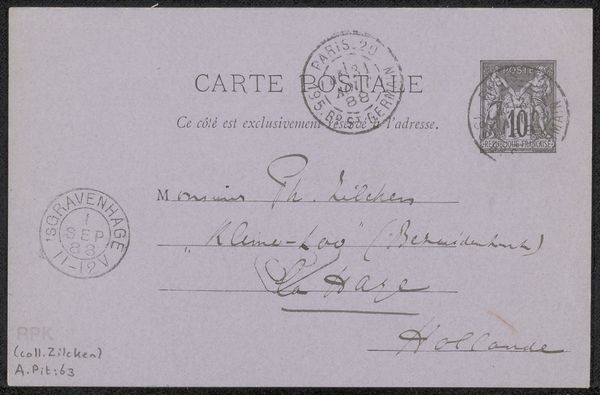 PARIS_20
31
AOUT
88
195 Bd ST GERMAIN
CARTE POSTALE
Ce côté est exclusivement réservé à l'adresse.
POSTE
10
REPUBLIQUE FRANÇAISE
Monsieur Ph. Zilcken
"Kleine-Loo" (Bezuidenhout)
La Haye
Hollande
'SGRAVENHAGE
1
SEP
88
11-12V
RPK
(coll. Zilcken)
A.Pit:63